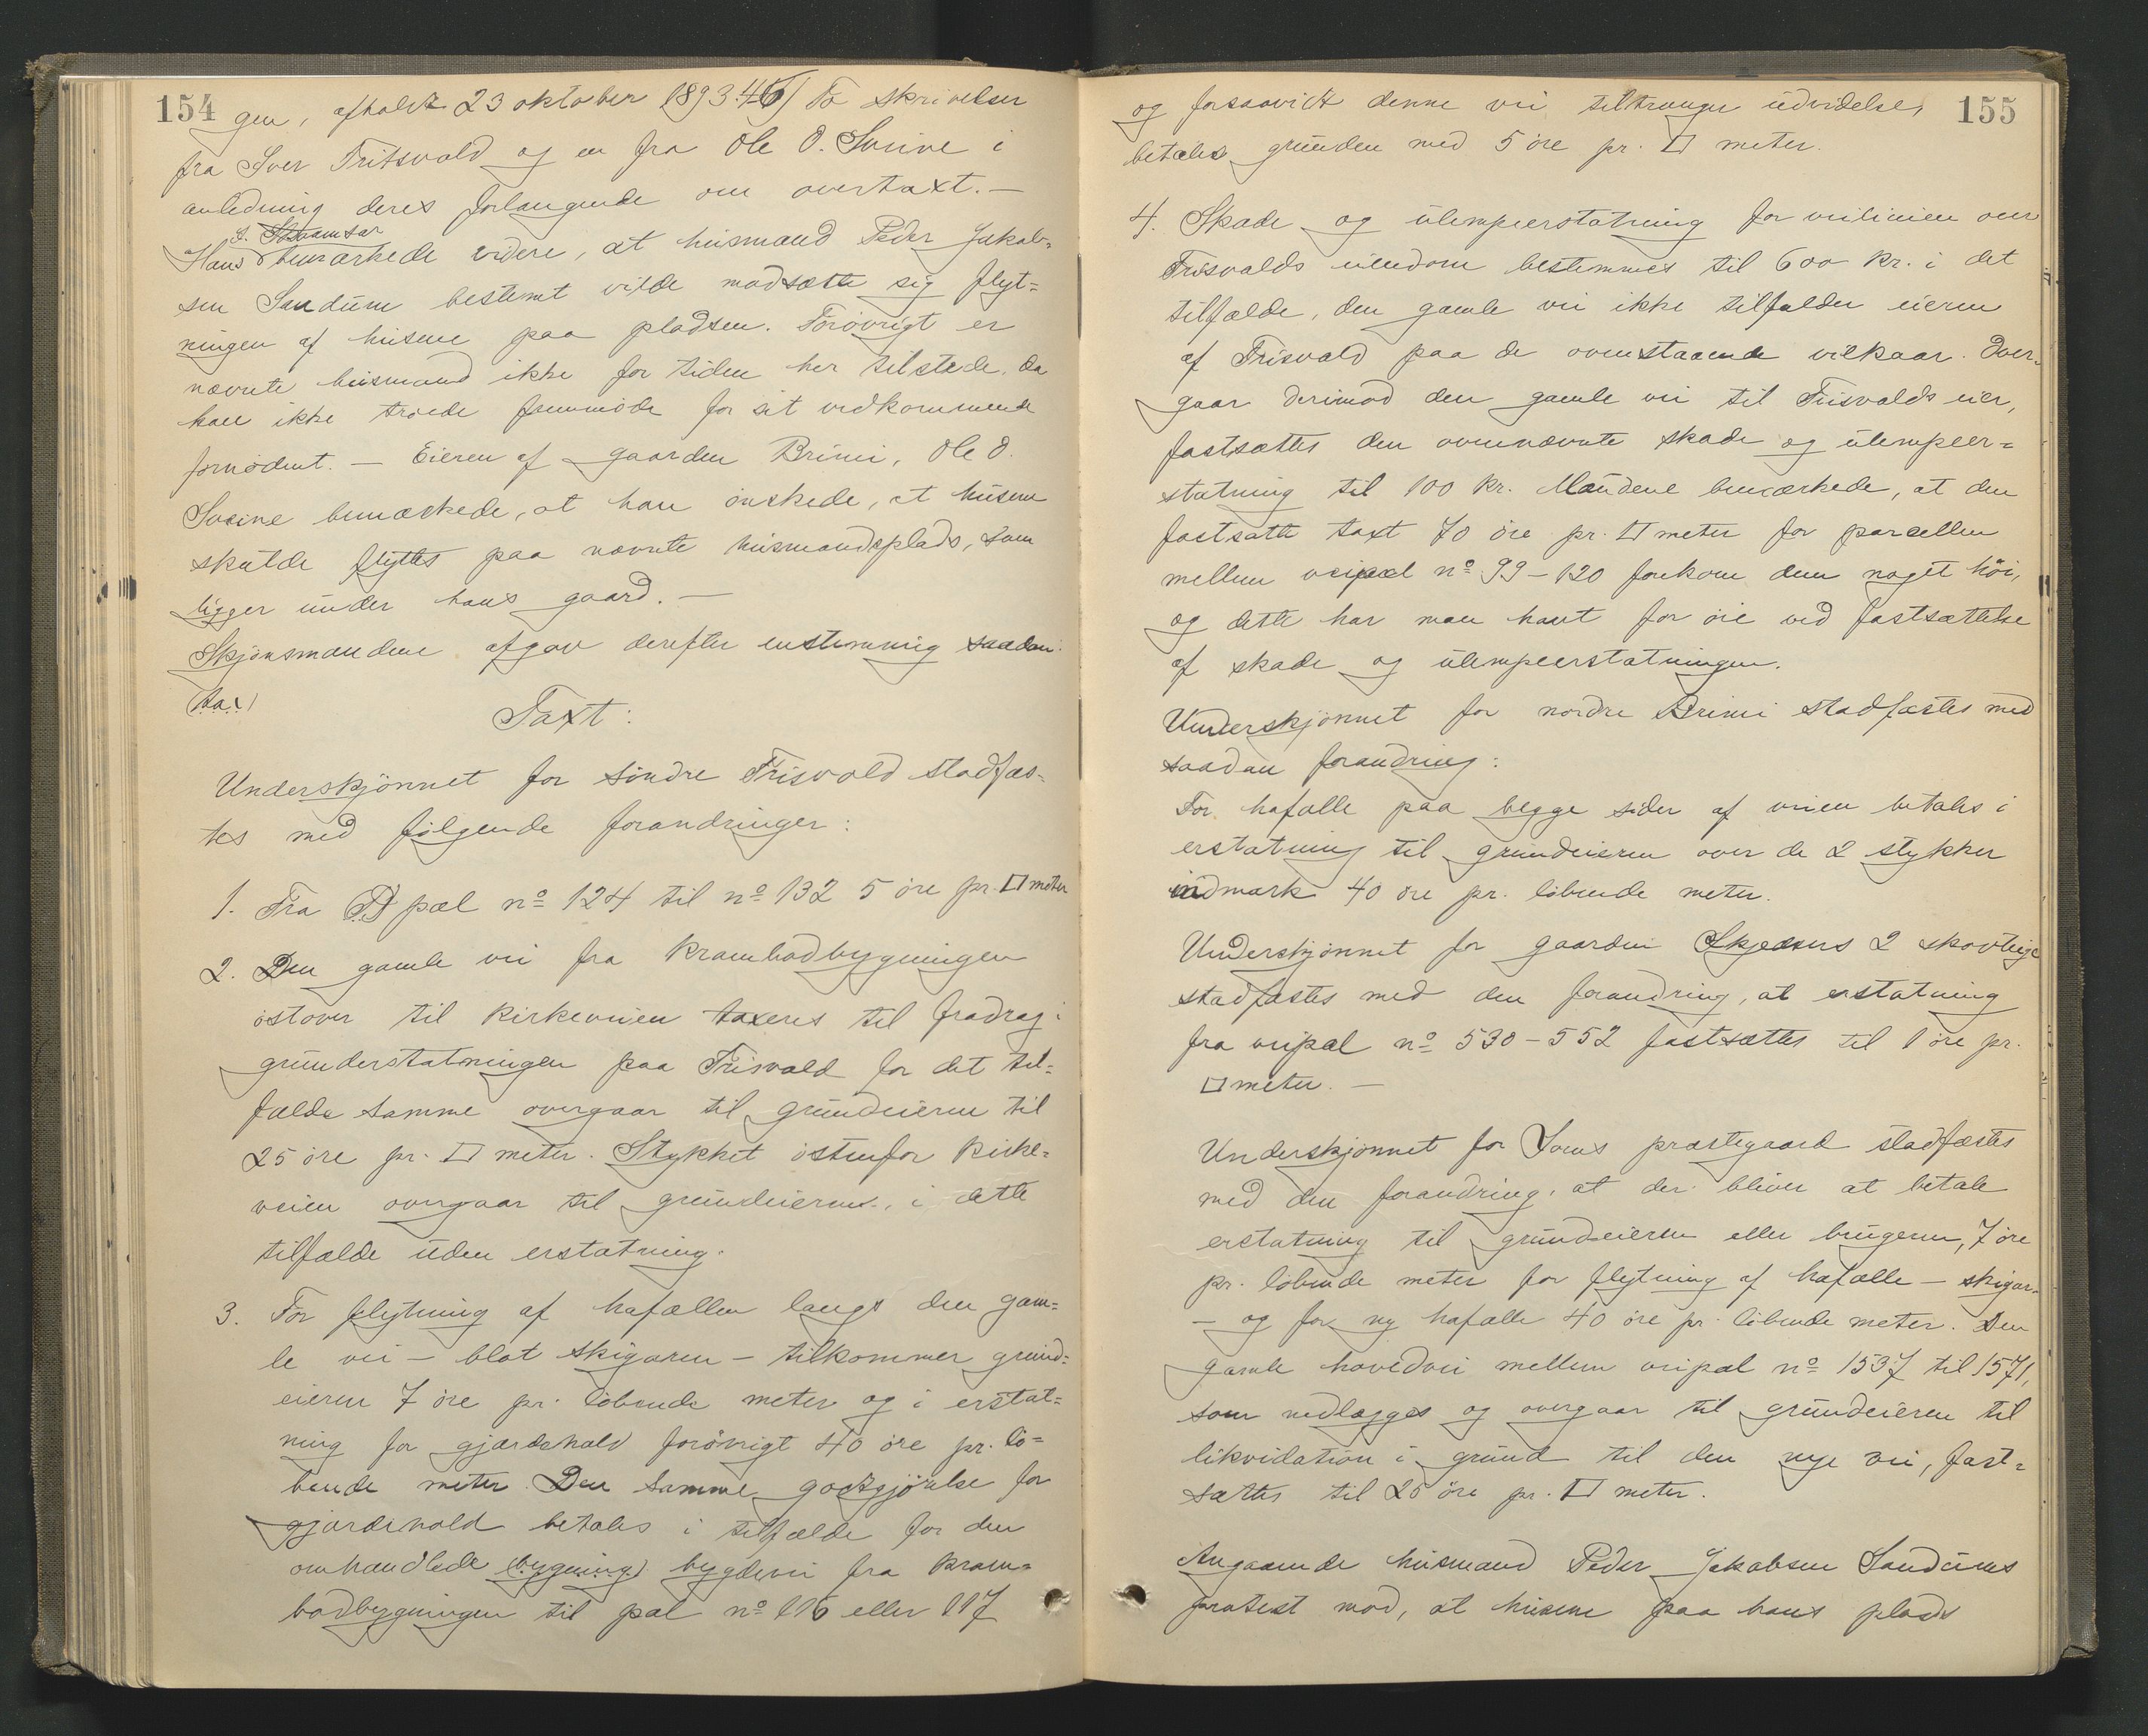 154
gen, afholdt 23 oktober 1893. 4 To skrivelser
fra Iver Fritsvold og en fra Ole O. Sveine i
anledning deres forlangende om overtaxt. —
Hans bemærkede videre, at husmand Peder Jakob-
sen Sandum bestemt vilde modsætte sig flyt-
ningen af husene paa pladsen. Forøvrigt er
nævnte husmand ikke for tiden her tilstede, da
han ikke troede fremmøde for sit vedkommende
fornødent. — Eieren af gaarden Brimi, Ole O.
Sveine bemærkede, at han ønskede, at husene
skulde flyttes paa nævnte husmandsplads, som
ligger under hans gaard. —
Skjønsmændene afgav derefter enstemmig saadan
(ta..)
Taxt:
Underskjønnet for søndre Frisvold stadfæs-
tes med følgende forandringer:
1. Fra pæl nº 124 til nº 132 5 øre pr. □ meter
2. Den gamle vei fra Krambodbygningen
østover til kirkeveien taxeres til fradrag i
grunderstatningen paa Frisvold for det til-
fælde samme overgaar til grundeieren til
25 øre pr. □ meter. Stykket østenfor kirke-
veien overgaar til grundeieren, i dette
tilfælde uden erstatning.
3. For flytning af hafællen langs den gam-
le vei — blot skigaren — tilkommer grund-
eieren 7 øre pr. løbende meter og i erstat-
ning for gjærdehold forøvrigt 40 øre pr. lø-
bende meter. Den samme godtgjørelse for
gjærdehold betales i tilfælde for den
omhandlede (bygning) bygdevei fra Kram-
bodbygningen til pæl nº 116 eller 117
155
og forsaavidt denne vei tiltrænger udvidelse,
betales grunden med 5 øre pr. □ meter.
4. Skade og ulempeerstatning for veilinien over
Frisvolds eiendom bestemmes til 600 Kr. i det
tilfælde, den gamle vei ikke tilfalder eieren
af Frisvold paa de ovenstaaende vilkaar. Over-
gaar derimod den gamle vei til Frisvolds eier,
fastsættes den ovennævnte skade og ulempeer-
statning til 100 Kr. Mændene bemærkede, at den
fastsatte taxt 70 øre pr. □ meter for parcellen
mellem veipæl nº 99 – 120 forekom dem noget høi,
og dette har man havt for øie ved fastsættelse
af skade og ulempeerstatningen.
Underskjønnet for nordre Brimi stadfæstes med
saadan forandring:
For hafælle paa begge sider af veien betales i
erstatning til grundeieren over de 2 stykker
indmark 40 øre pr. løbende meter.
Underskjønnet for gaarden 2 skovteige
stadfæstes med den forandring, at erstatning
fra veipæl nº 530 – 552 fastsættes til 1 øre pr.
□ meter. —
Underskjønnet for Loms præstegaard stadfæstes
med den forandring, at der bliver at betale
erstatning til grundeieren eller brugeren, 7 øre
pr. løbende meter for flytning af hafælle — skigar-
— og for ny hafælle 40 øre pr. løbende meter. Den
gamle hovedvei mellem veipæl nº 1537 til 1571,
som nedlægges og overgaar til grundeieren til
likvidation i grund til den nye vei, fast-
sættes til 25 øre pr. □ meter.
Angaaende husmand Peder Jakobsen Sandums
protest mod, at husene paa hans plads